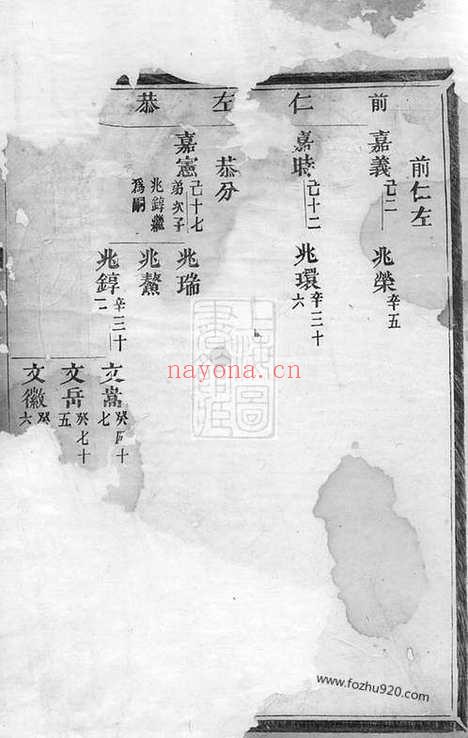 前仁左
前
嘉義 己二
兆榮 辛五
仁
嘉時 己十二
兆環 辛三十六
左
恭分
恭
嘉憲 己十七
弟次子
兆錞繼
爲嗣
兆瑞
兆鰲
兆錞 辛三十一
文嵩 癸 十七
文岳 癸七十五
文徽 癸 六
nayona.cn
www.fozhu920.com